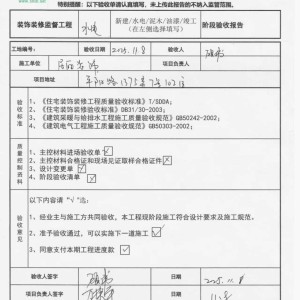 特别提醒：请认真填写验收单，未上传此报告的不纳入监管范围。
装饰装修监督工程 水电 新建/水电/泥木/油漆/竣工（在左侧选择填写） 阶段验收报告
工地编号： 验收日期 2025.11.8 验收人
施工单位
项目地址
验收标准
1、《住宅装饰装修工程质量验收标准》T/SDDA；
2、《住宅装饰装修验收标准》DB31/30-2003；
3、《建筑采暖与给排水工程施工质量验收规范》GB50242-2002；
4、《建筑电气工程施工质量验收规范》GB50303-2002；
质量控制资料
1、主控材料进场验收单
2、主控材料合格证和现场见证取样合格证件
3、设计变更单
4、阶段验收清单
验收意见
以下内容请“√”选：
1、经业主与施工方共同验收，本工程现阶段施工符合设计要求及施工规范。
2、准予验收通过，可以实施下一道施工
3、同意支付本期工程进度款
验收人签字 日期 2025.11.8
项目负责人签字 日期 11.8